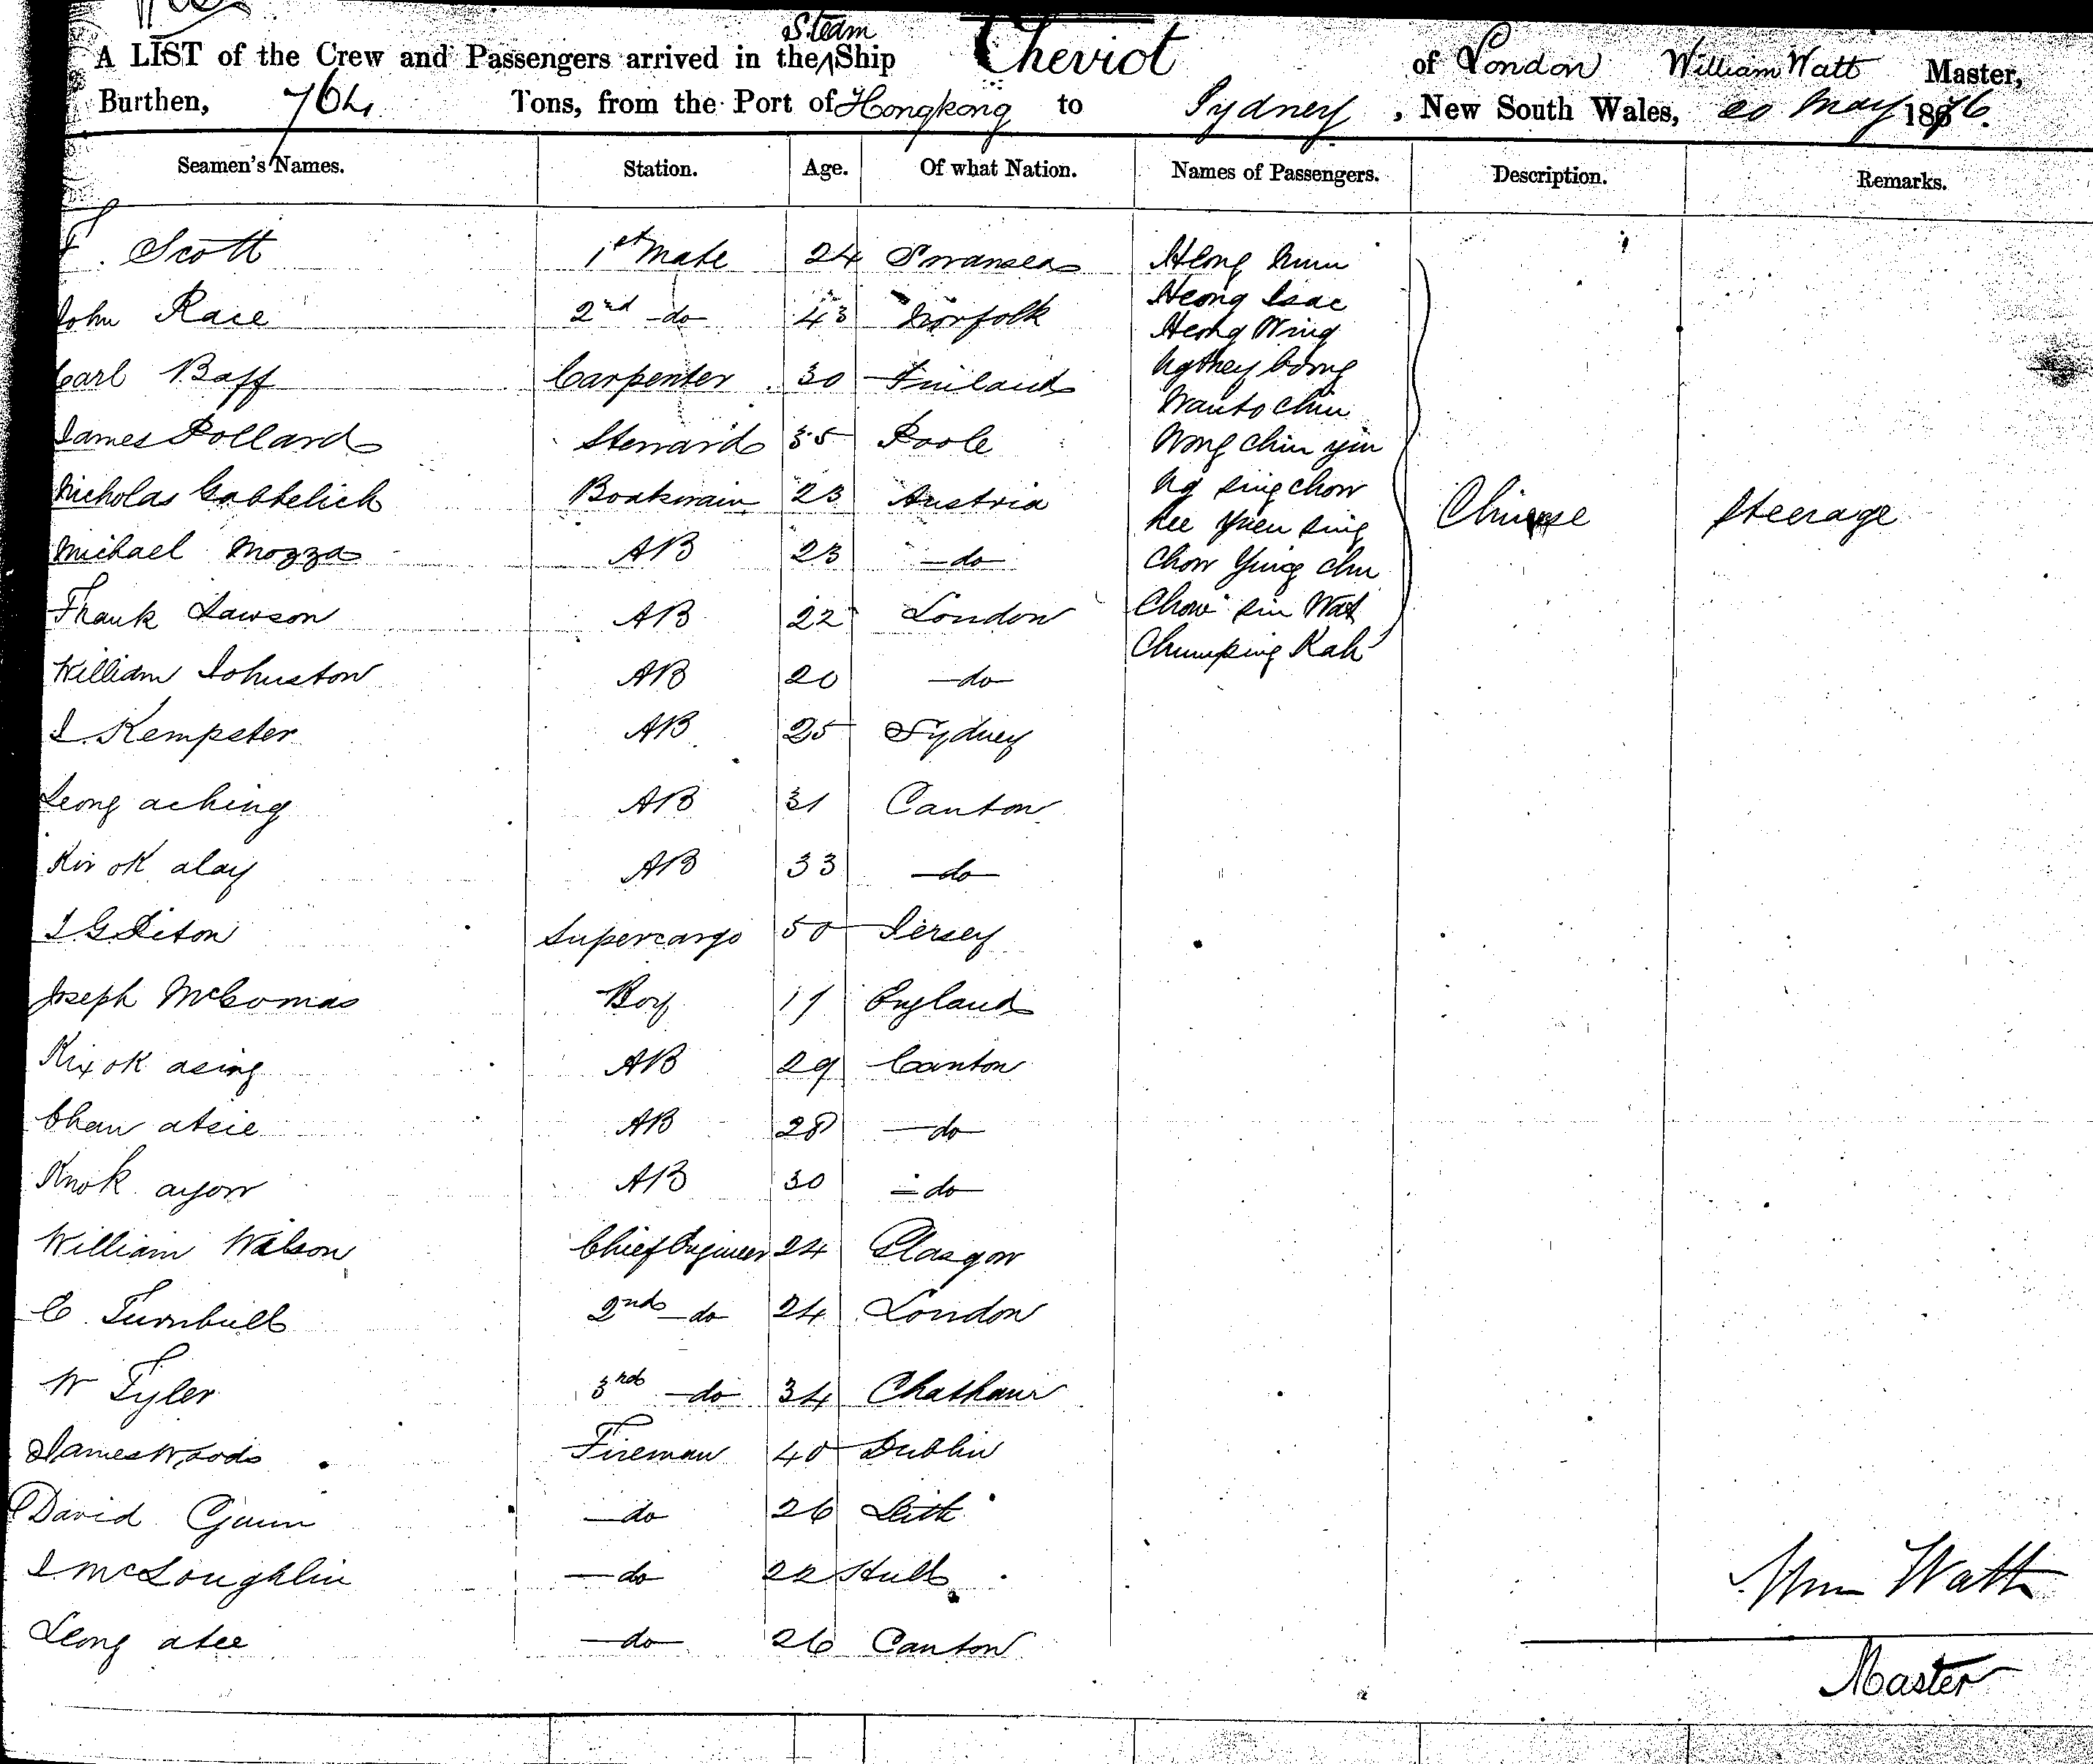 A LIST of the Crew and Passengers arrived in the Steam Ship Cheviot of London William Watt Master,
Burthen, 764 Tons, from the Port of Hongkong to Sydney, New South Wales, 20 May 1876.
Seamen's Names. Station. Age. Of what Nation. Names of Passengers. Description. Remarks.
F. Scott 1st Mate 24 Swansea
John Race 2nd do 43 Norfolk
Carl Baff Carpenter 30 Finland
James Pollard Steward 35 Poole
Nicholas Boatswain 23 Austria
Michael Mozza AB 23 do
Frank Lawson AB 22 London
William Johnston AB 20 do
J. Kempster AB 25 Sydney
Leong aching AB 31 Canton
alay AB 33 do
Supercargo 50 Jersey
Joseph McComas Boy 17 England
asing AB 29 Canton
Chan atsie AB 28 do
ayow AB 30 do
William Watson Chief Engineer 24 Glasgow
C. Turnbull 2nd do 24 London
W Tyler 3rd do 34 Chatham
James Woods Fireman 40 Dublin
David Gunn do 26 Leith
J McLoughlin do 22 Hull
Leong atee do 26 Canton
Heong
Heong Isac
Heong Wing
Wong chin yin
Ng sing chow
Lee yuen sing
Chow Ying chu
Chow sin Wat
Chumping Kah
Chinese Steerage
Wm Watt
Master